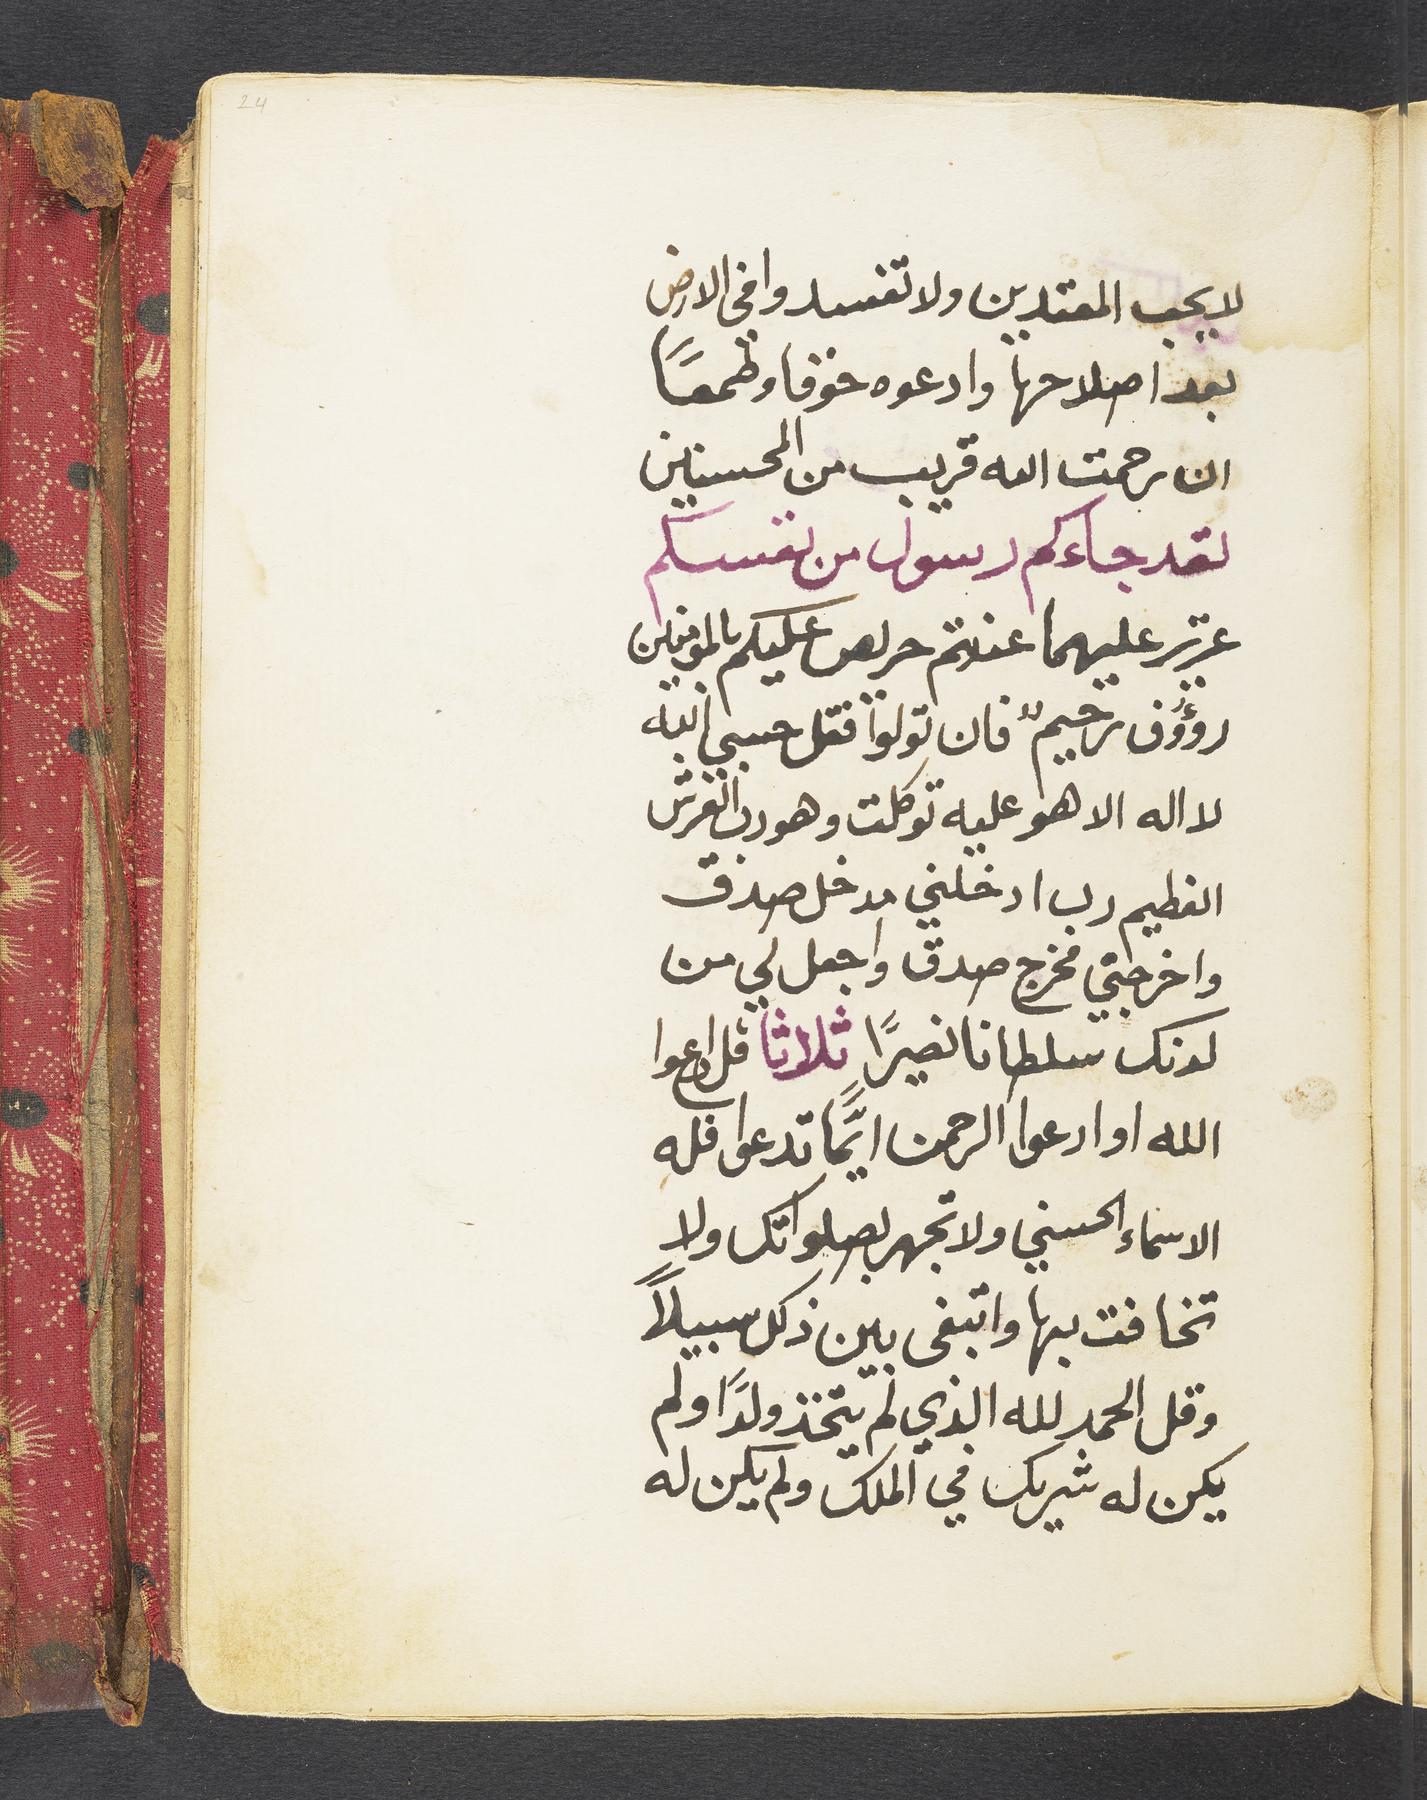 24
لا يحب المعتدين ولا تفسدوا فى الارض
بعد اصلاحها وادعوه خوفا وطمعًا
ان رحمت الله قريب من المحسنين
لقد جاءكم رسول من نفسكم
عزيز عليهما عنتم حريص عليكم بالمؤمنين
رؤف رحيم فان تولوا فقل حسبي الله
لا اله الا هو عليه توكلت وهو رب العرش
العظيم رب ادخلني مدخل صدق
واخرجني مخرج صدق واجعل لي من
لدنك سلطانا نصيرًا ثلاثا قل ادعوا
الله او ادعوا الرحمن ايًّما تدعوا فله
الاسماء الحسني ولا تجهر بصلواتك ولا
تخافت بها وابتغى بين ذلك سبيلاً
وقل الحمد لله الذي لم يتخذ ولدًا ولم
يكن له شريك في الملك ولم يكن له